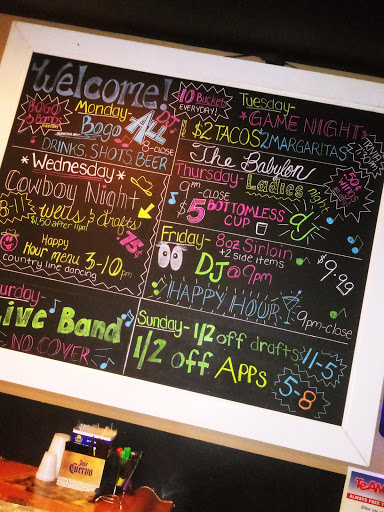 Welcome!
BOGO
Bombs
Monday-
Bogo ALL DJ
8-close
DRINKS, SHOTS, BEER
*Wednesday*
Cowboy Night
8-11 wells & drafts
$1.50 after 11pm
75¢
Happy
Hour menu 3-10pm
country line dancing
10 Buckets
EVERYDAY!
Tuesday-
*GAME NIGHT*
$2 TACOS $2 MARGARITAS
TRIVIA
The Babylon
Thursday- Ladies night
50¢
wings
9pm-close
$5 BOTTOMLESS CUP
dj
Friday- 8oz Sirloin
+2 side items
$9.99
DJ @ 9pm
HAPPY HOUR
9pm-close
urday-
Live Band
NO COVER
Sunday- 1/2 off drafts 11-5
1/2 off Apps 5-8
Jose
Cuervo
TEAM